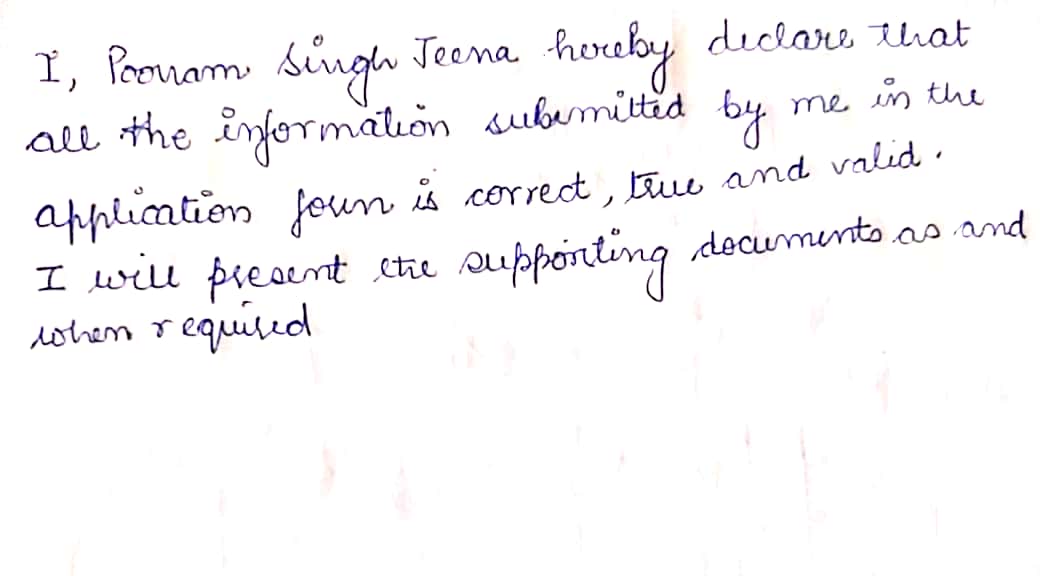 I, Poonam Singh Jeena hereby declare that
all the information submitted by me in the
application form is correct, true and valid.
I will present the supporting documents as and
when required